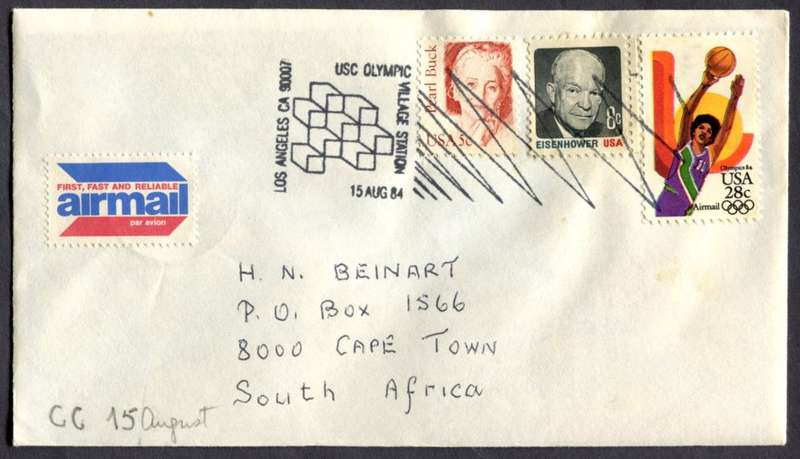 LOS ANGELES CA 90007
USC OLYMPIC
VILLAGE STATION
15 AUG 84
Pearl Buck
USA 5c
8c
EISENHOWER USA
Olympics 84
USA
28c
Airmail
FIRST, FAST AND RELIABLE
airmail
par avion
H. N. BEINART
P. O. Box 1566
8000 CAPE TOWN
South Africa
CC 15 August